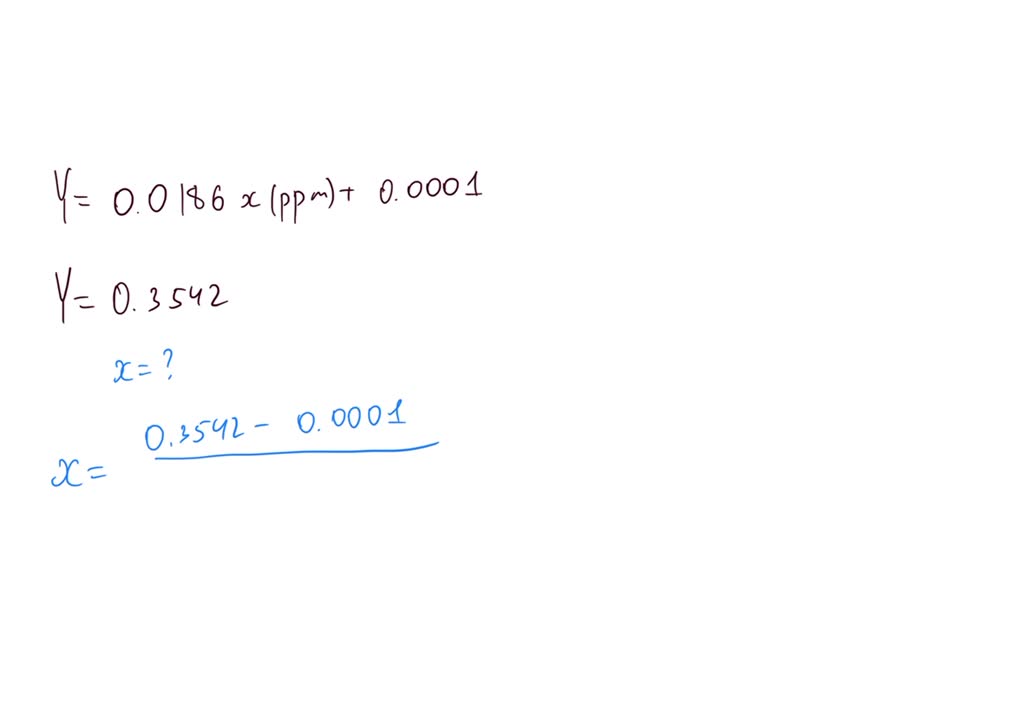 Y= 0.0186 x (ppm)+ 0.0001
Y= 0.3542
x= ?
0.3542 - 0.0001
x=